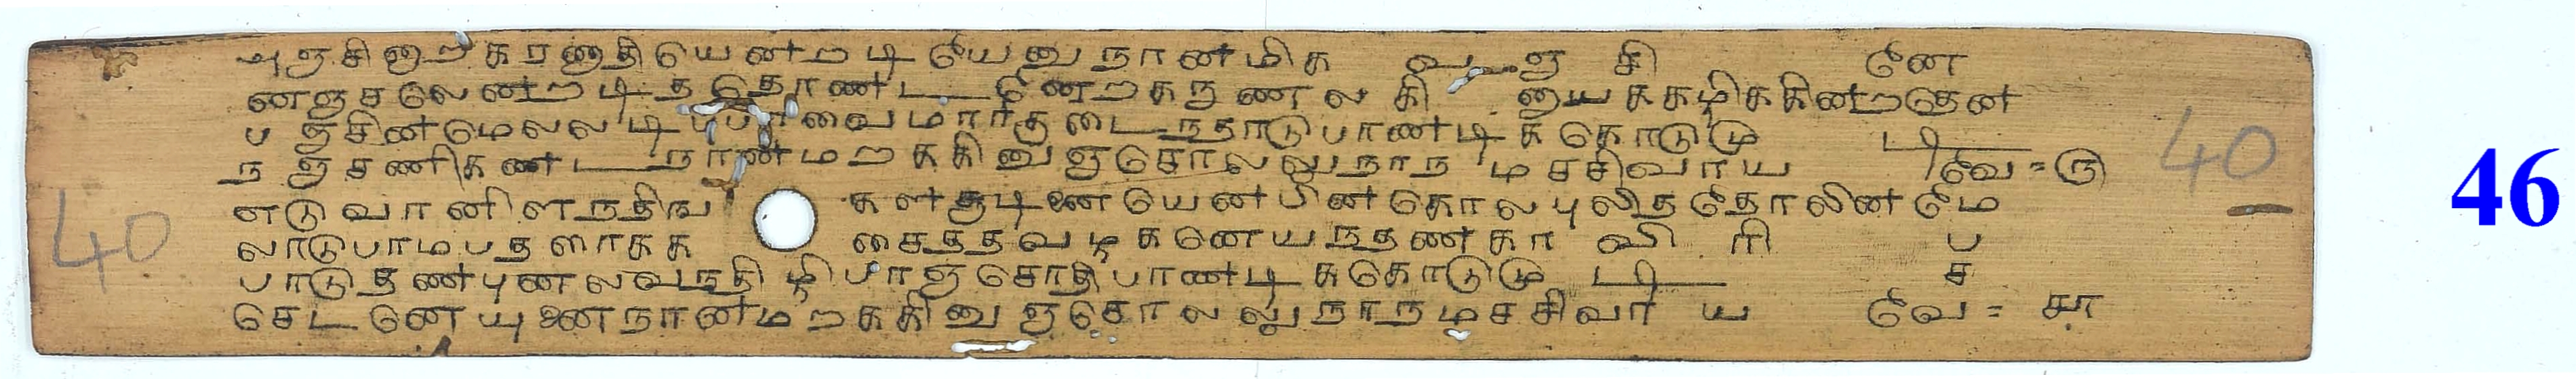 அஞசினாறகரணாதியெனறடியேனுநானமிக வஞசி னே
னஞசலெனறடிததொணடனேறகருணலகி னாயககழிககினறதென
பஞசினமெலலடிபபாவைமார்குடைநதாடுபாணடிககொடுமு டி
நஞசணிகணடநானமறககினுஞசொலலுநாந மசசிவாய வே=ரு
எடுவானிளநதிங களசூடினையெனபினகொலபுலிததோலினமே
லாடுபாமபதளாகக சைததவழகனேயநதணகா வி ரி ப
பாடுதணபுனலவநதிழிபரஞசொதிபாணடிககொடுமு டி ச
செடனேயுனைநானமறககினுஞசொலலுநாநமசசிவா ய வே= சா
40
40
46